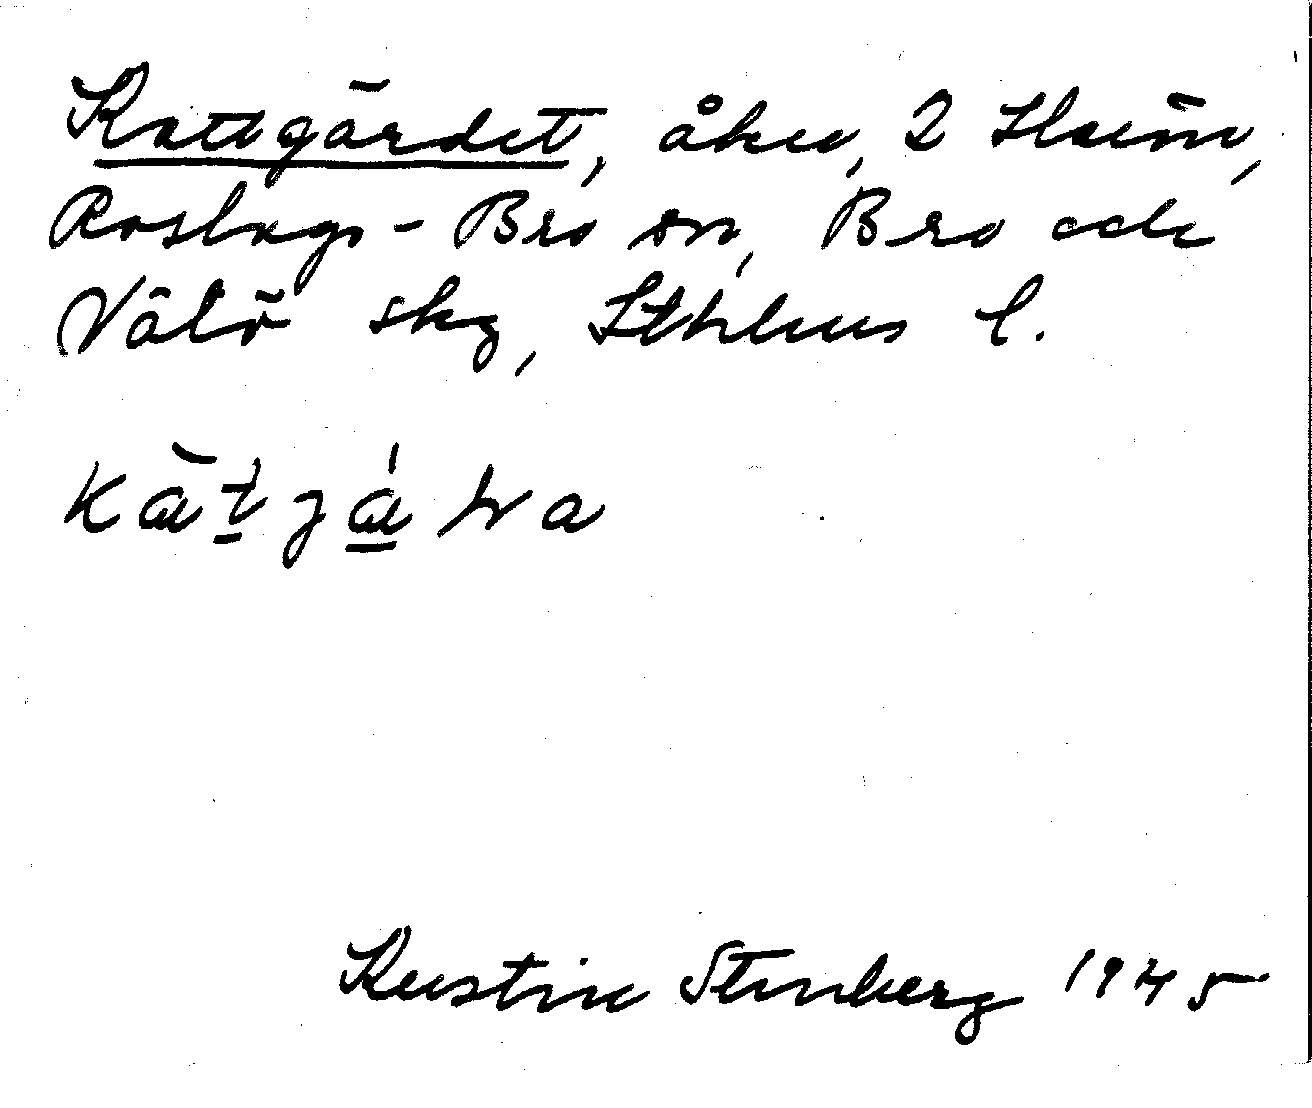 Kattgärdet, åker, 2
Roslags-Bro sn, Bro och
Vätö skg, Sthlms l.
Kerstin Stenberg 1945